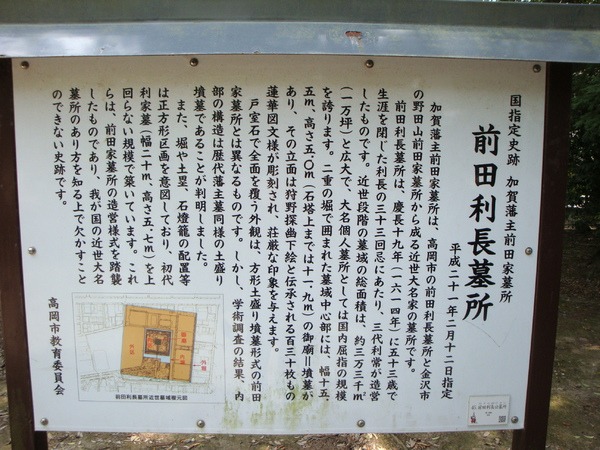 国指定史跡 加賀藩主前田家墓所
前田利長墓所
平成二十一年二月十二日指定
加賀藩主前田家墓所は、高岡市の前田利長墓所と金沢市
の野田山前田家墓所から成る近世大名家の墓所です。
前田利長墓所は、慶長十九年(一六一四年)に五十三歳で
生涯を閉じた利長の三十三回忌にあたり、三代利常が造営
したものです。近世段階の墓域の総面積は、約三万三千㎡
(一万坪)と広大で、大名個人墓所としては国内屈指の規模
を誇ります。二重の堀で囲まれた墓域中心部には、幅十五・
五m、高さ五・〇m(石塔上までは十一・九m)の御廟=墳墓が
あり、その立面は狩野探幽下絵と伝承される百三十枚もの
蓮華図文様が彫刻され、荘厳な印象を与えます。
戸室石で全面を覆う外観は、方形土盛り墳墓形式の前田
家墓所とは異なるものです。しかし、学術調査の結果、内
部の構造は歴代藩主墓同様の土盛り
墳墓であることが判明しました。
また、堀や土塁、石燈籠の配置等
は正方形区画を意図しており、初代
利家墓(幅二十m、高さ五・七m)を上
回らない規模で築いています。これ
らは、前田家墓所の造営様式を踏襲
したものであり、我が国の近世大名
墓所のあり方を知る上で欠かすこと
のできない史跡です。
高岡市教育委員会
前田利長墓所近世墓域復元図